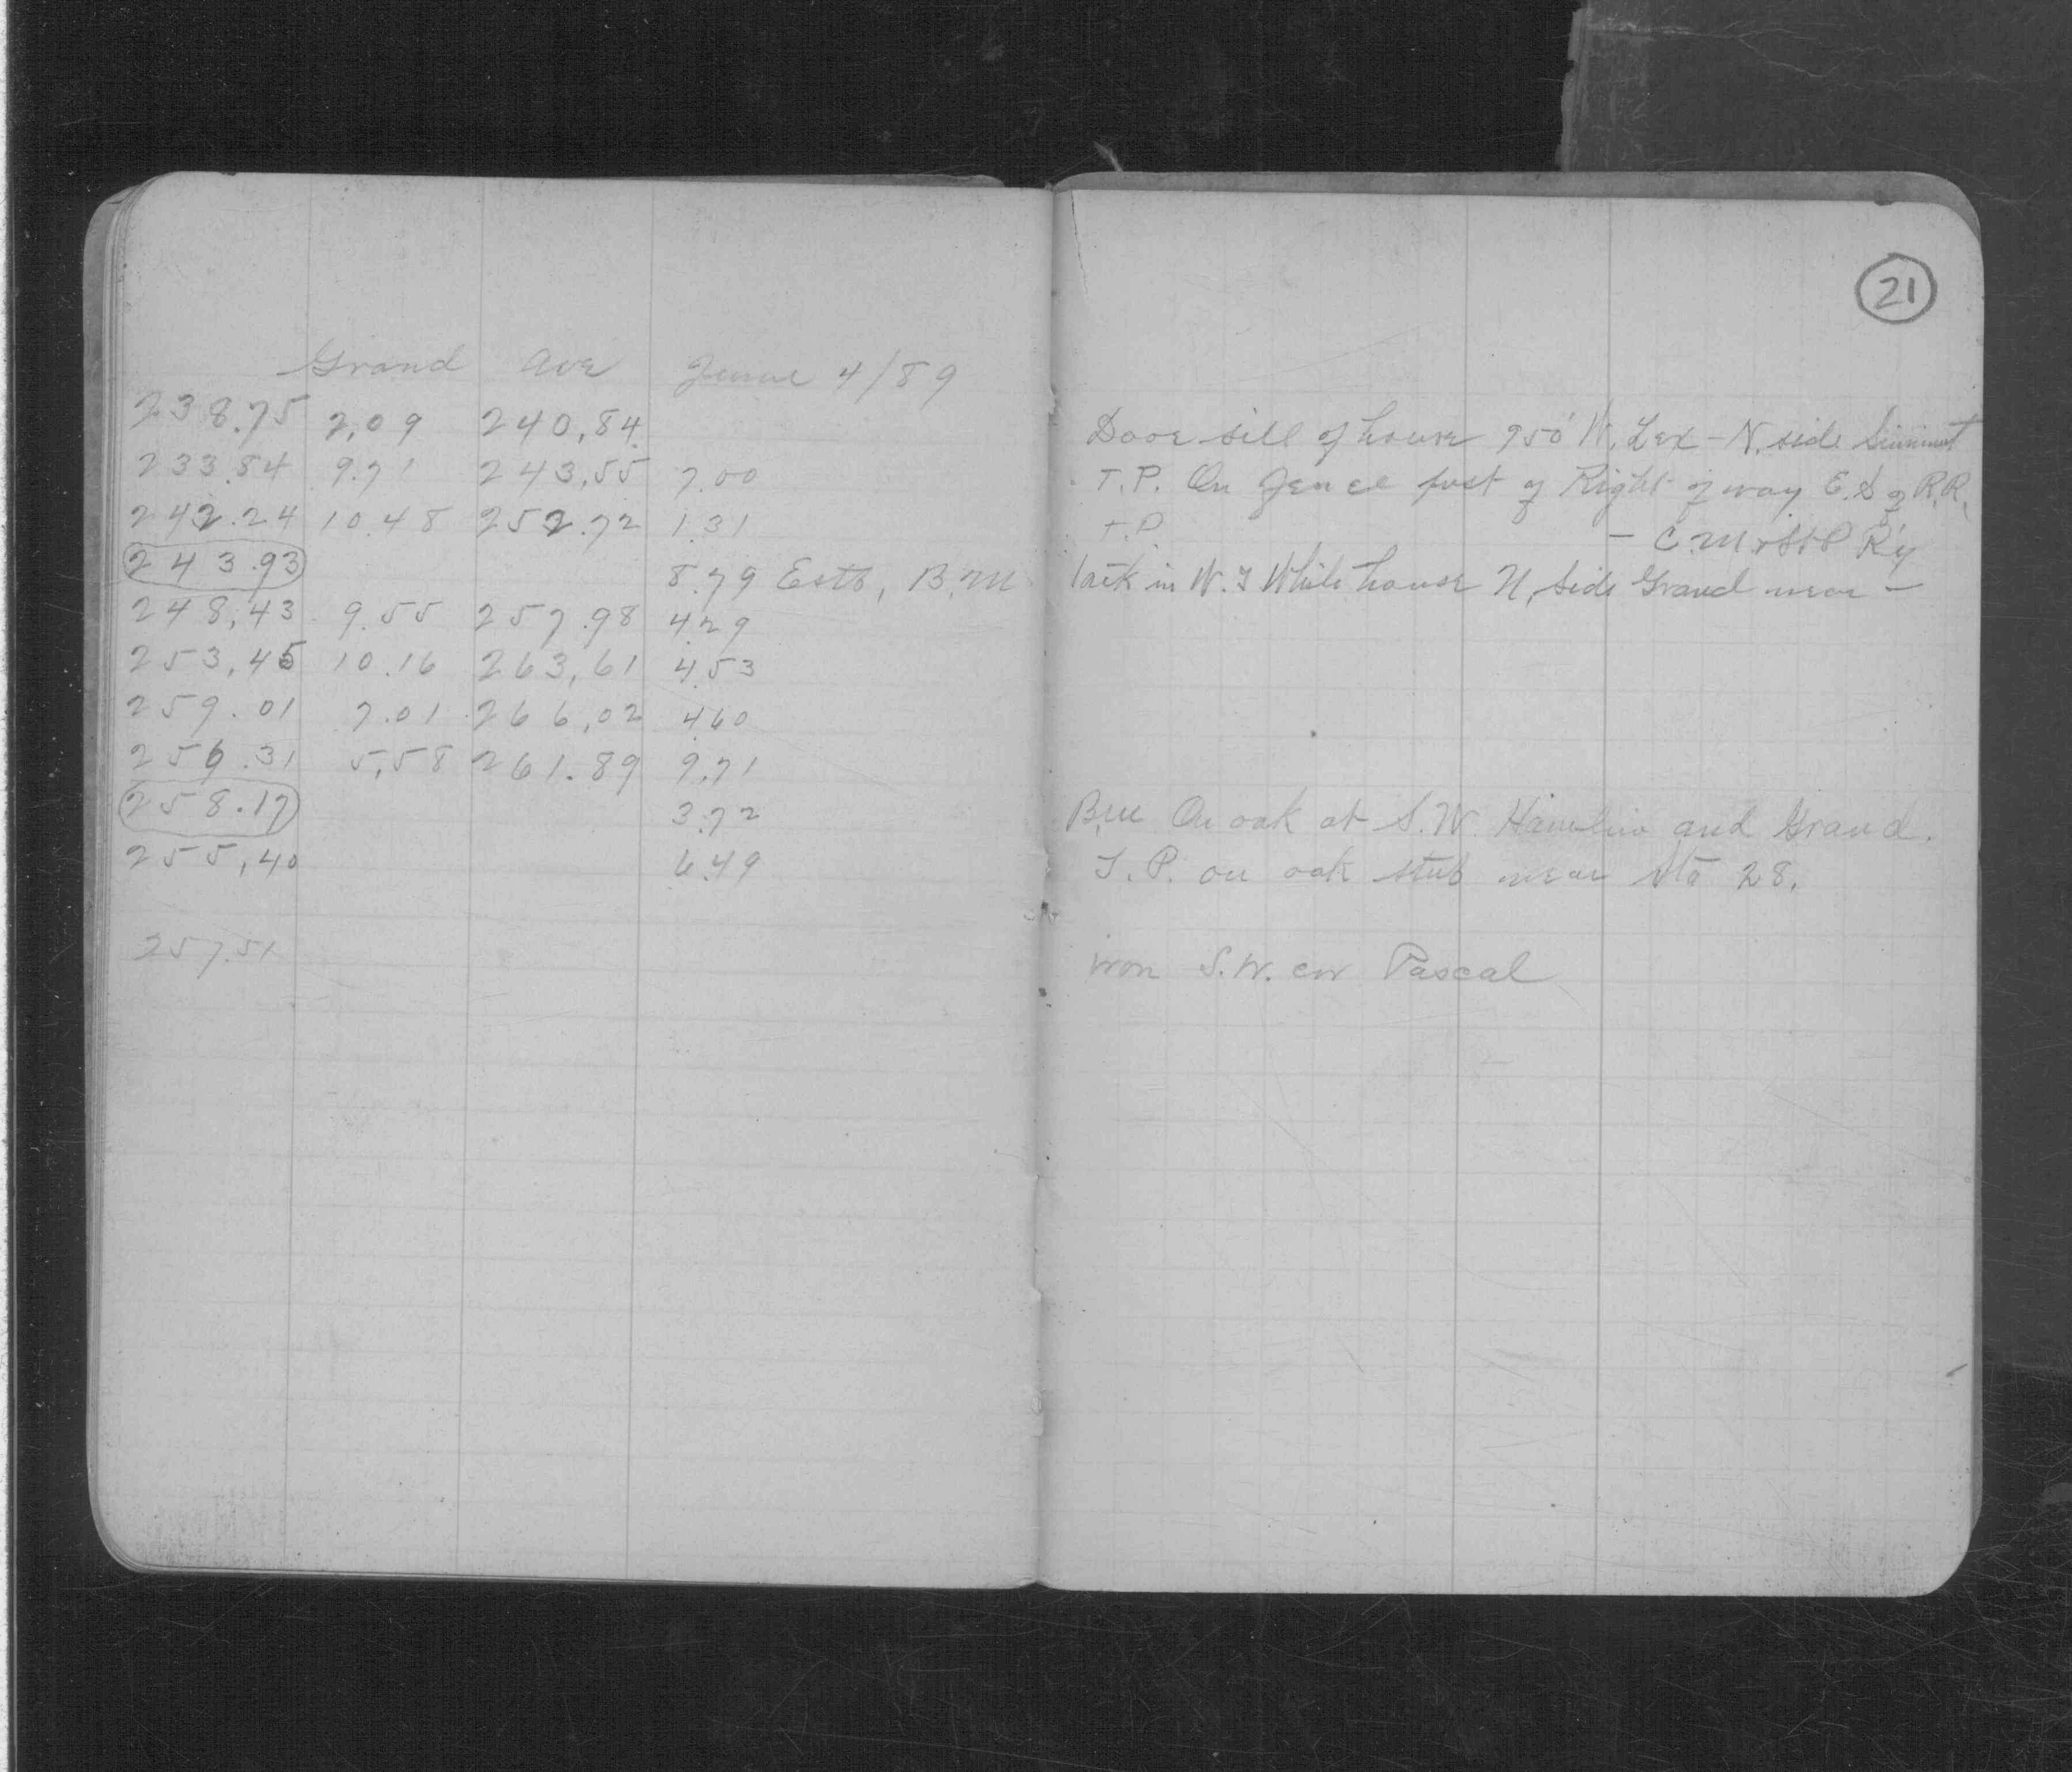 21
Grand Ave June 4/89
238.75 2.09 240.84 Door sill of house 950' W. Lex - N. side Summit
233.84 9.71 243.55 7.00 T.P. On fence post of Right of way E.S of R.R.
242.24 10.48 252.72 1.31 T.P. - C.M.&StP R'y
243.93 8.79 Estb, B.M tack in W. F White house N. side Grand near -
248.43 9.55 257.98 4.29
253.45 10.16 263.61 4.53
259.01 7.01 266.02 4.60
256.31 5.58 261.89 9.71
258.17 3.72 B.M On oak at S.W. Hamline and Grand.
255.40 6.49 T.P. on oak stub near Sta 28.
257.51 iron S.W. cor Pascal